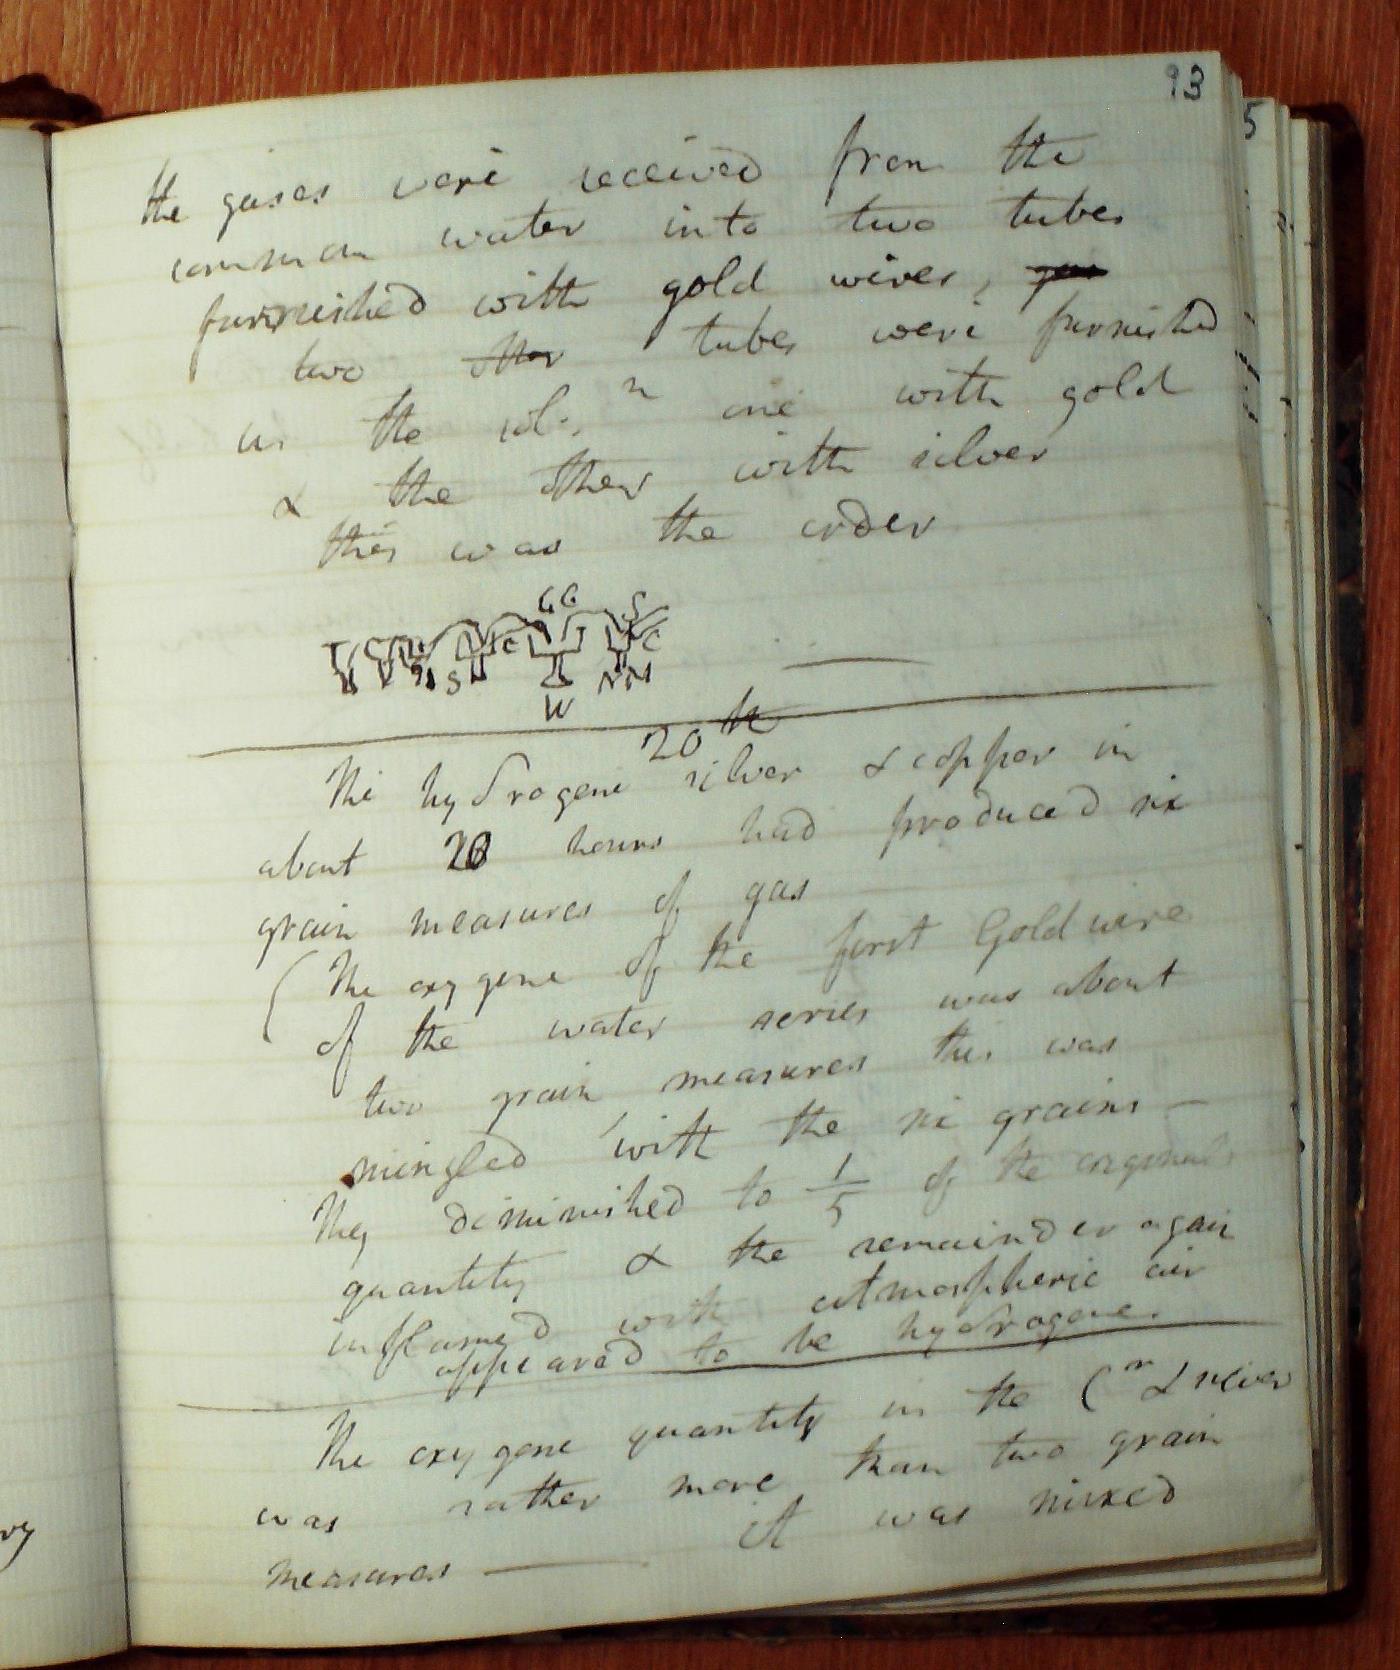 93
5
the gases were received from the
common water into two tubes
furnished with gold wires, gas
two other tubes were furnished
in the sol.n one with gold
& the other with silver
this was the order
GG S
C C
S W NM
20th
The hydrogene silver & copper in
about 20 hours had produced six
grain measures of gas
(The oxygene of the first Gold wire
of the water series was about
two grain measures this was
mingled with the six grains —
They diminished to 1/5 of the original
quantity & the remainder again
inflamed with atmospheric air
appeared to be hydrogene.
The oxygene quantity in the Cr & silver
was rather more than two grain
measures — it was mixed